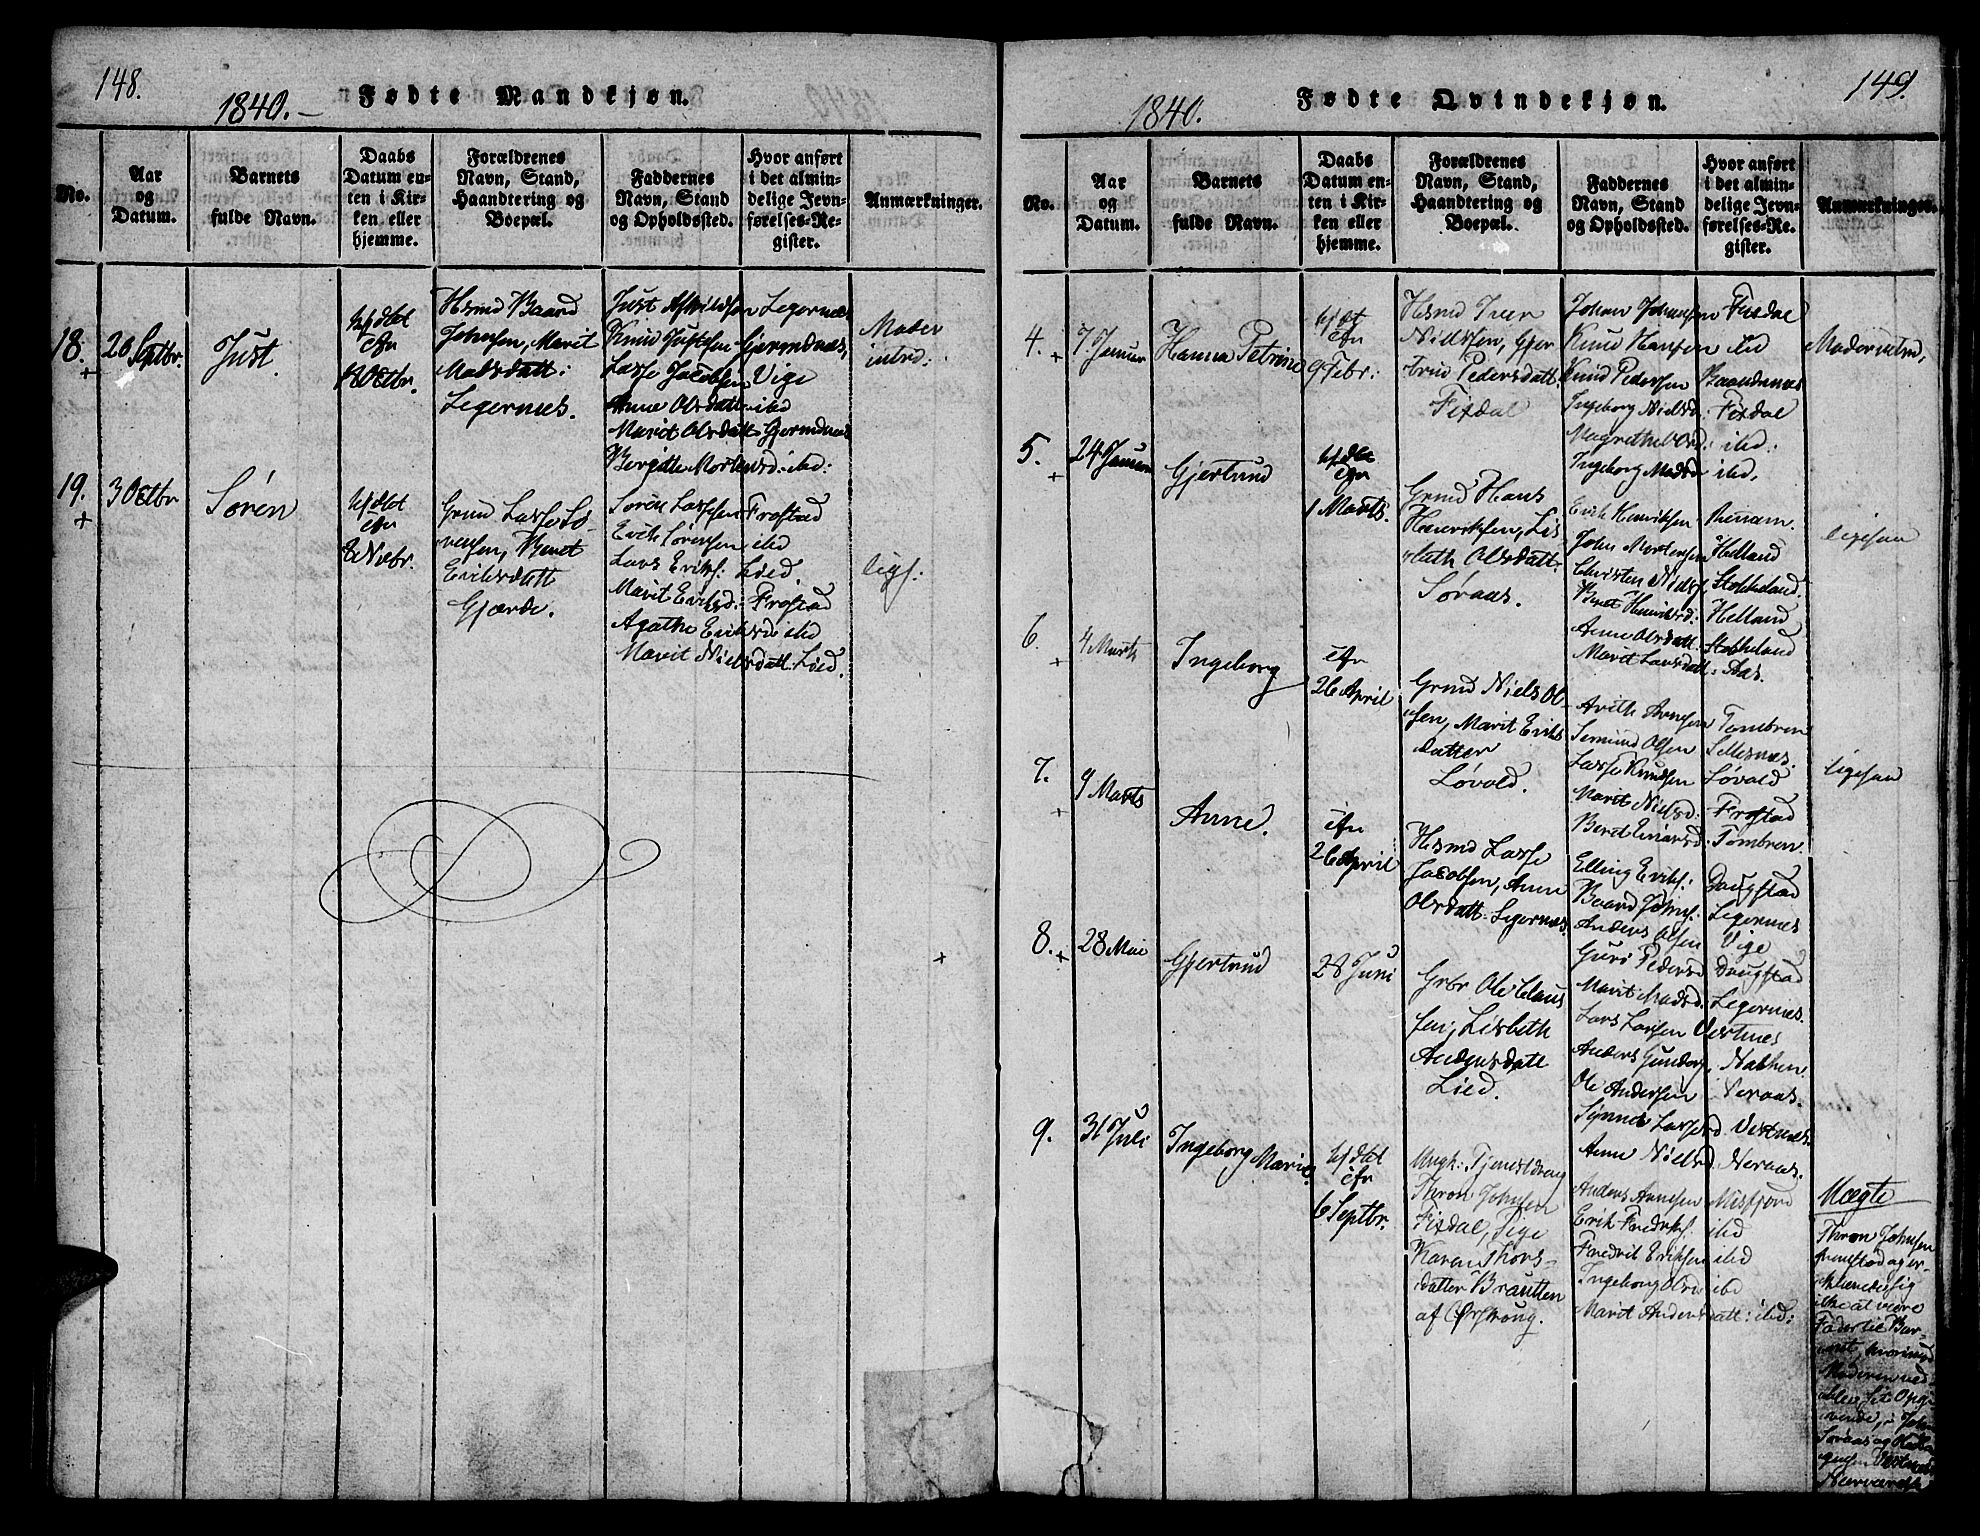 148.
1840.- Fødte Mandkjøn.
No.
Aar
og
Datum.
Barnets
fulde Navn.
Daabs
Datum en-
ten i Kir-
ken eller
hjemme.
Forældrenes
Navn, Stand,
Haandtering og
Boepæl.
Faddernes
Navn, Stand
og Opholdssted.
Hvor anført
i det almin-
delige Jevn-
førelses-Re-
gister.
Anmærkninger.
18.
+
26 Septbr.
Just.
Hsmd Baard
Johnsen, Marit
Madsdatt:
Legernes.
Legernes
Knud Justsen Gjermdnæs,
Lasse Jacobsen Vige
Anne Olsdatt. ibd
Marit Olsdatt Gjermdnæs
Birgitte Mortensd: ibd:
Moder
introd:
19.
+
3 Octbr
Søren
8 Novbr.
Grmd Lasse Sø-
rensen, Beret
Eriksdatt
Gjærde.
Søren Lassesen Frostad
Erik Sørensen ibd
Lars Eriks: Lied
Marit Eriksd: Frostad
Agathe Eriksd: ibd
Marit Nielsdatt: Lied.
ligs:
149.
1840. Fødte Qvindekjøn.
No.
Aar
og
Datum.
Barnets
fulde Navn.
Daabs
Datum en-
ten i Kir-
ken eller
hjemme.
Forældrenes
Navn, Stand,
Haandtering og
Boepæl.
Faddernes
Navn, Stand
og Opholdssted.
Hvor anført
i det almin-
delige Jevn-
førelses-Re-
gister.
Anmærkninger.
4.
+
7. Januar
Hanna Petrine
9 Febr:
Hsmd Iver
Nielsen, Gjer-
trud Pedersdatt.
Fixdal
Johan Johnsen Fixdal
Knud Hansen ibd
Knud Pedersen Baandnæs
Ingeborg Nielsd: Fixdal
Magrethe Olsd: ibd:
Ingeborg Madsd ibd,
Moder introd,
5.
+
24 Januar
Gjertrud
1 Marts.
Grmd Hans
Henriksen, Lis-
beth Olsdatt:
Søraas.
Erik Henriksen
John Mortensen Helland
Christen Niels: Stokkeland.
Beret Henriksd: Helland
Anne Olsdatt: Stokkeland
Marit Larsdatt: Aas.
ligesaa
6.
+
4 Marts
Ingeborg
26 April
Grmd Niels Ol-
sen, Marit Eriks
datter
Løvold.
Arnsen Tombren
Olsen
Lasse Knudsen Løvold
Marit Nielsd: Frostad
Beret Einarsd: Tombren.
ligesaa
7.
+
9 Marts
Anne.
26 April
Hsmd Lasse
Jacobsen, Anne
Olsdatt: Legernæs.
Elling Eriks: Daugstad
Baard Johns: Legernæs
Anders Olsen Vige
Guri Pedersd Daugstad
Marit Madsd. Legernæs.
8.
+
28 Mai
Gjertrud
28 Juni
Grbr Ole Claus
sen, Lisbeth
Andersdatt
Lied.
Lars Larsen Vestnæs
Anders Nakken
Ole Andersen Neraas.
Synnev Lassesd Vestnæs
Anne Nielsd. Neraas.
9.
31 Juli
Ingeborg Marie
6 Septbr.
Ungk: Tjenestdreng
Thron Johnsen
Fixdal, Pige
Karen Thors-
datter Brautten
af Ørskoug.
Anders Arnesen Misfjord
Erik Fredriks: ibd
Fredrik Eriksen ibd
Ingeborg Olsd ibd
Marit Andersdatt: ibd:
Mægte
Thron Johnsen
klærede sig
ikke at være
Fader til Bar-
net, hvorimod
Moderen ved-
blev sit Opgi-
vende,